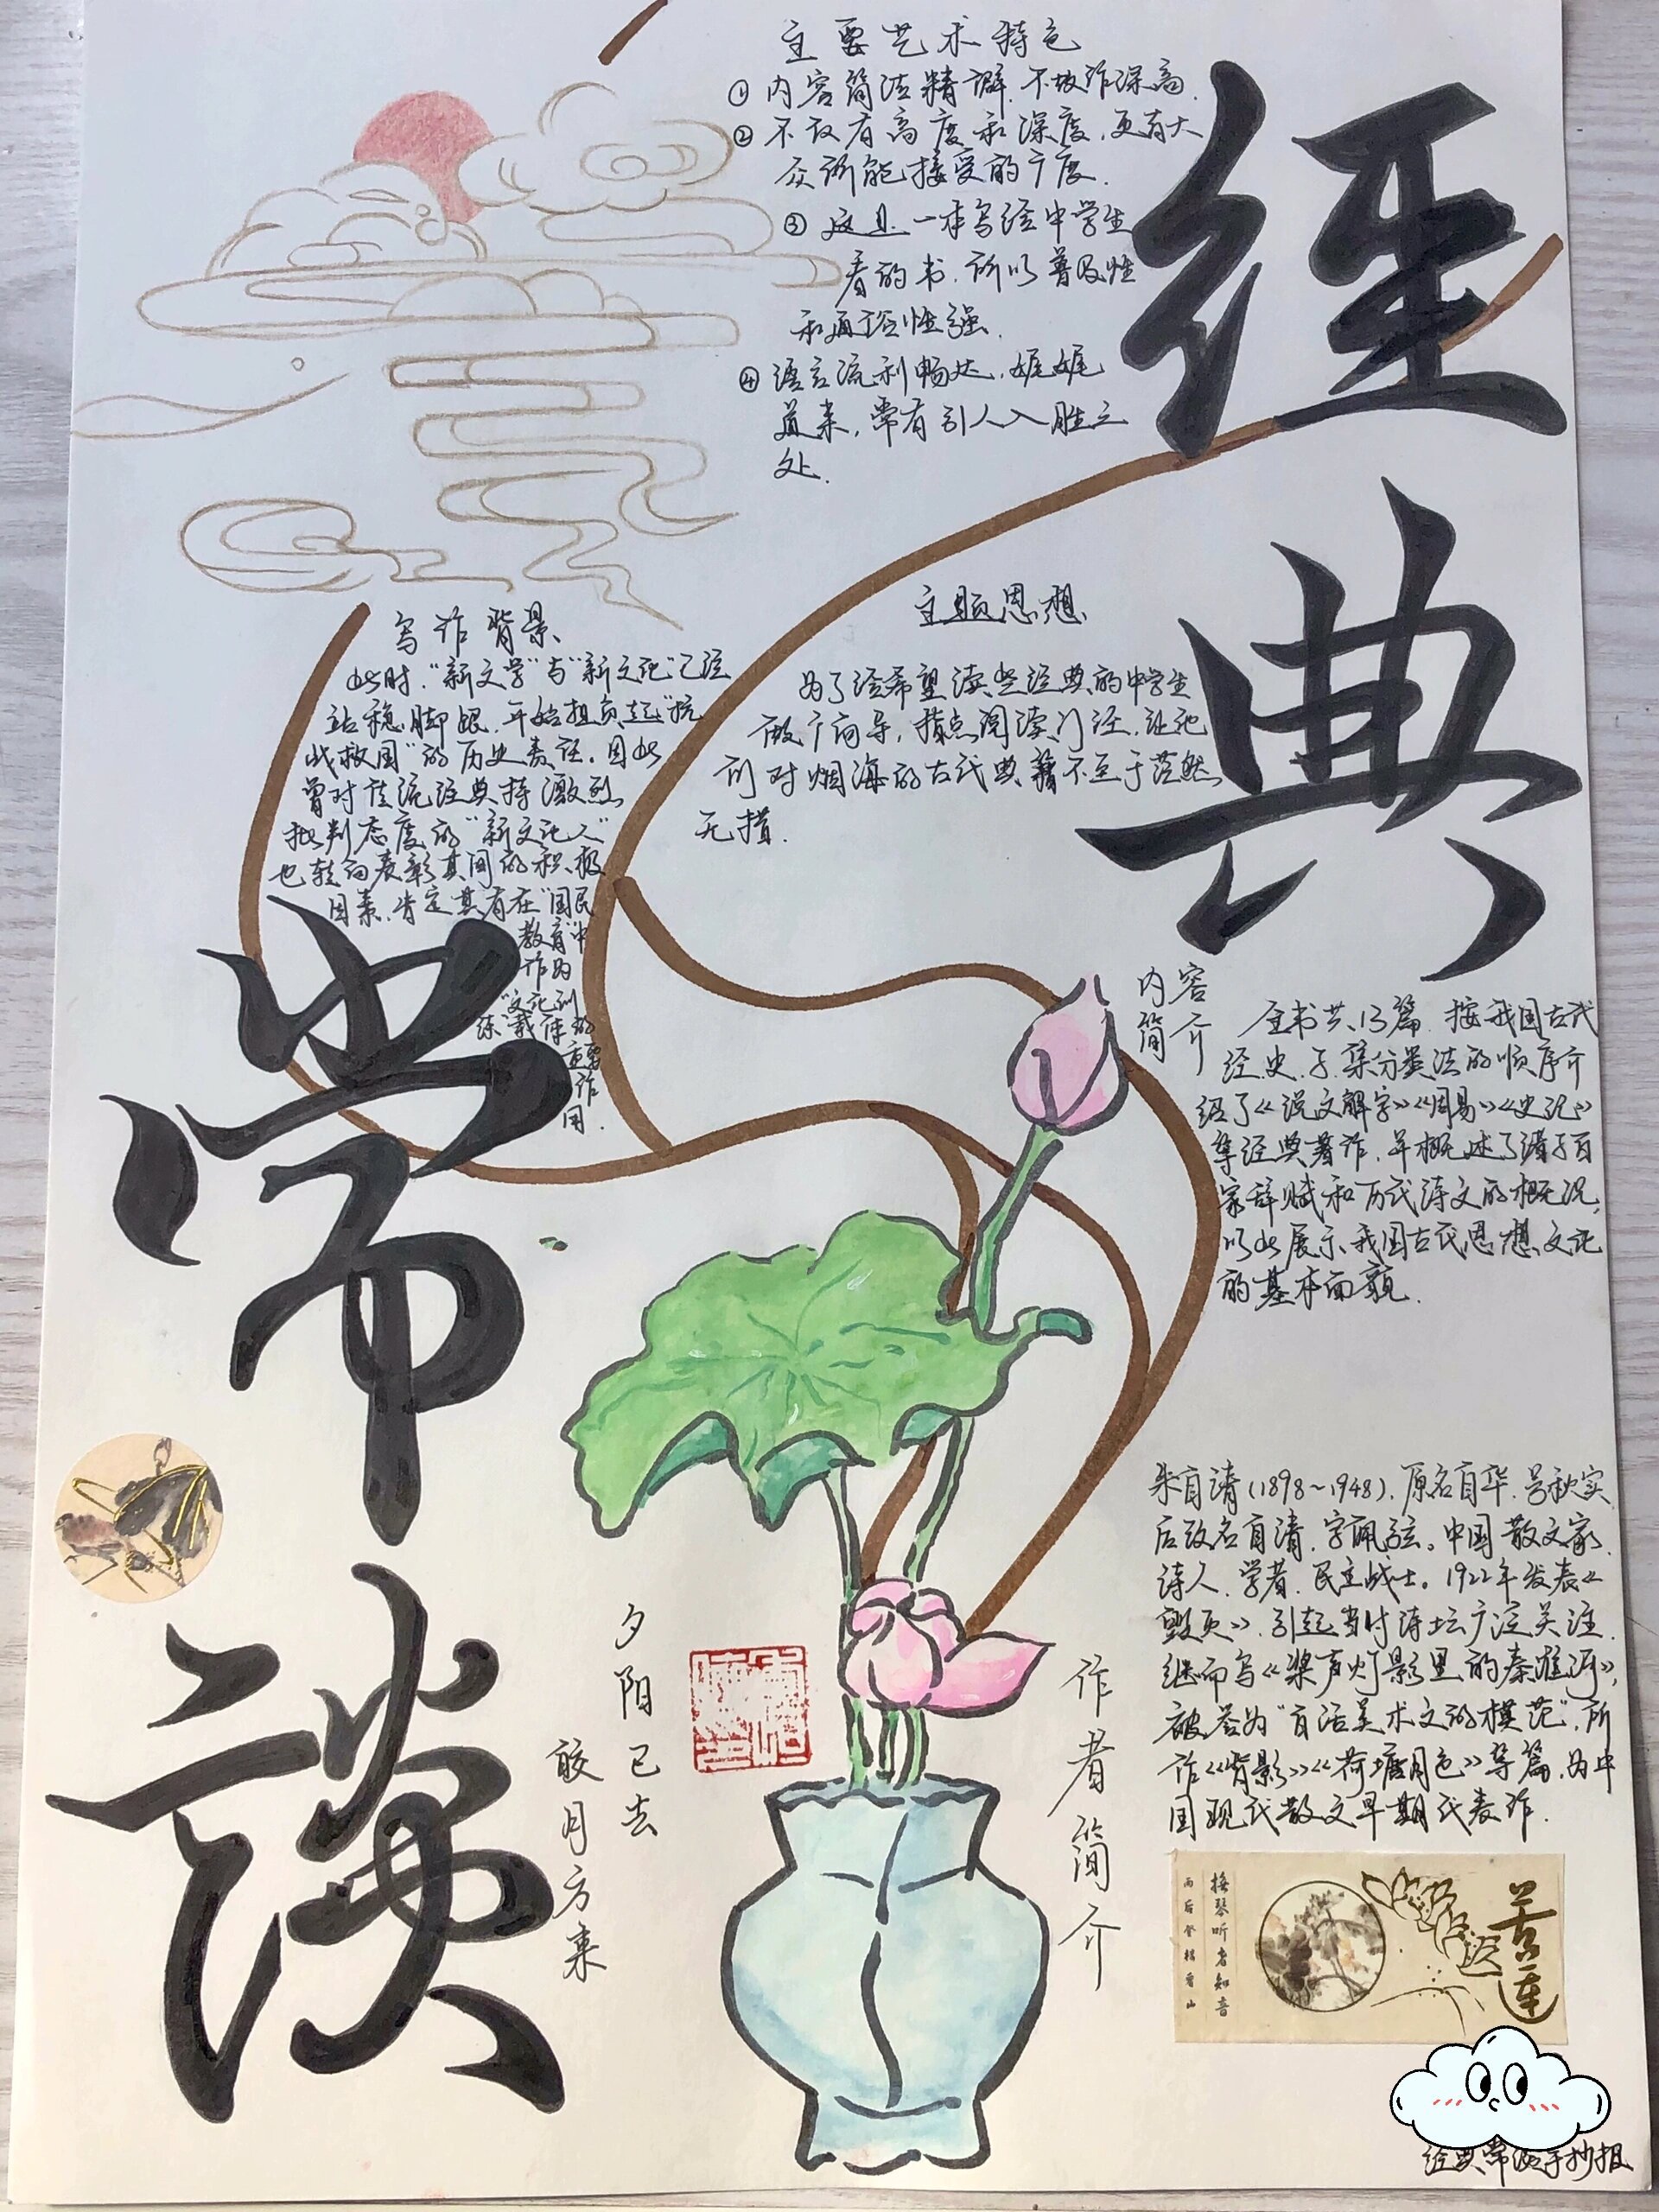 經
典
常
談
主要艺术特色
①内容简洁精辟.不故作深高.
②不仅有高度和深度,更有大
众所能接受的广度.
③这是一本写给中学生
看的书.所以普及性
和通俗性强.
④语言流利畅达,娓娓
道来,常有引人入胜之
处.
写作背景
此时,"新文学"与"新文化"已经
站稳脚跟,开始担负起"抗
战救国"的历史责任.因此
曾对传统经典持激烈
批判态度的"新文化人"
也转向表彰其间的积极
因素,肯定其有在"国民
教育"中
作为
"文化训
练"载体的
重要
作
用.
主题思想
为了给希望读些经典的中学生
做个向导,指点阅读门径,让他
们对烟海的古代典籍不至于茫然
无措.
内容
简介
全书共13篇.按我国古代
经.史.子.集分类法的顺序介
绍了《说文解字》《周易》《史记》
等经典著作.并概述了诸子百
家辞赋和历代诗文的概况,
以此展示我国古代思想、文化
的基本面貌.
作者简介
朱自清(1898~1948).原名自华.号秋实
后改名自清.字佩弦。中国散文家.
诗人.学者.民主战士。1922年发表《
毁灭》.引起当时诗坛广泛关注.
继而写《桨声灯影里的秦淮河》,
被誉为"白话美术文的模范".所
作《背影》《荷塘月色》等篇,为中
国现代散文早期代表作.
夕阳已去
皎月方来
苦莲
抚琴听者知音
经典常谈手抄报